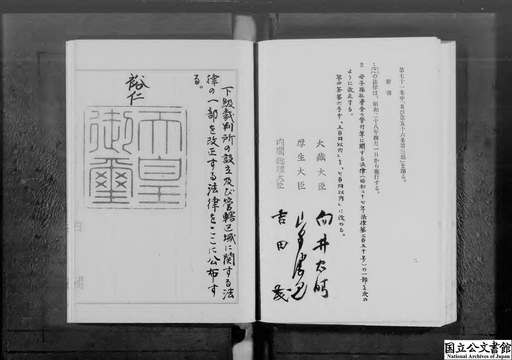 第七十一条中「及び第五十六条第三項」を削る。
附則
1 この法律は、昭和二十八年四月一日から施行する。
2 母子福祉資金の貸付等に関する法律(昭和二十七年法律第三百五十号)の一部を次の
ように改正する。
大蔵大臣 向井忠晴
厚生大臣 山縣勝見
内閣総理大臣 吉田茂
下級裁判所の設立及び管轄区域に関する法
律の一部を改正する法律をここに公布す
る。
裕仁
天皇
御璽
国立公文書館
National Archives of Japan